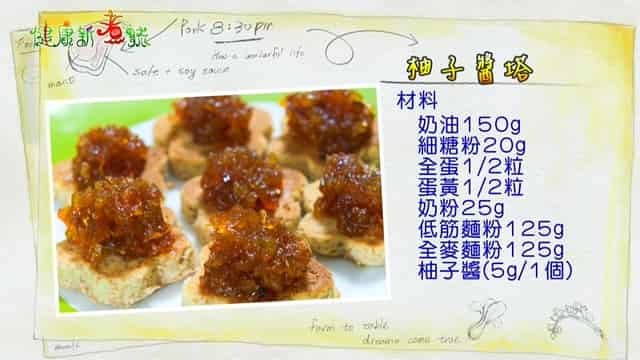 健康新煮流
Pork 8:30pm
How a wonderful life
safe + soy sauce
柚子醬塔
材料
奶油150g
細糖粉20g
全蛋1/2粒
蛋黃1/2粒
奶粉25g
低筋麵粉125g
全麥麵粉125g
柚子醬(5g/1個)
farm to table
drawing come true